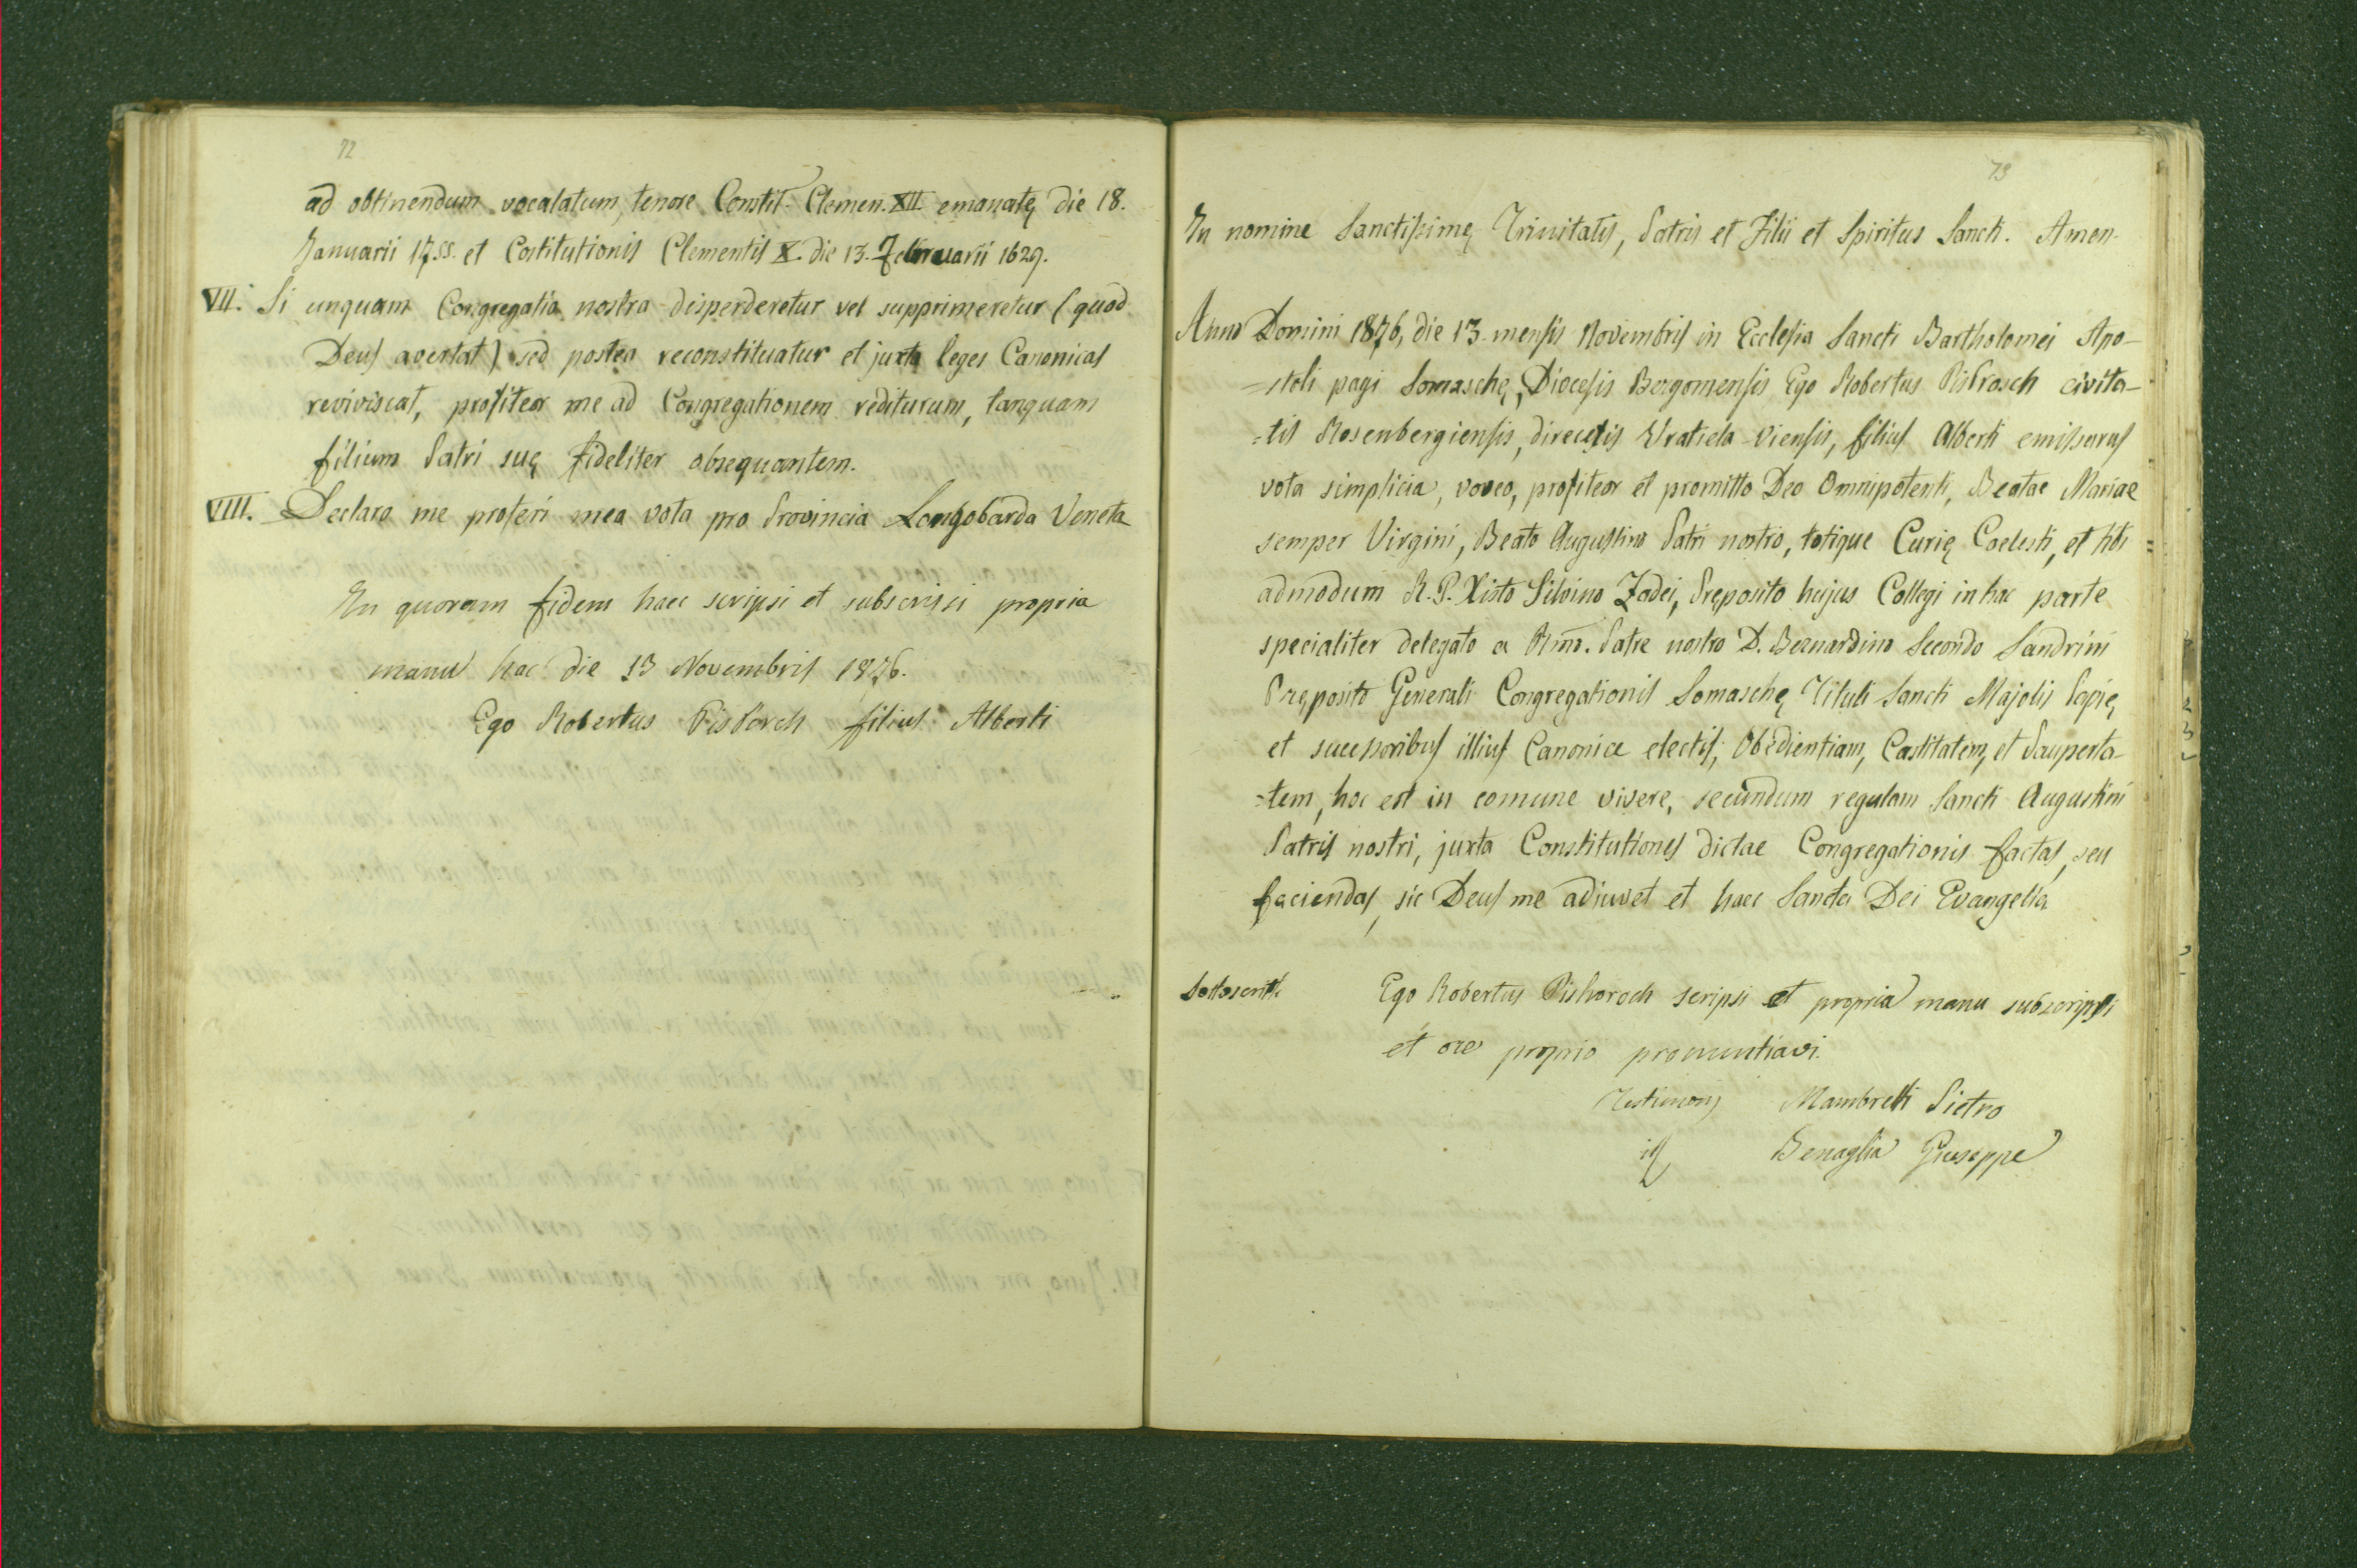 72
ad obtinendum vocalatum, tenore Constit. Clemen. XII emanatę die 18.
Januarii 17.55. et Costitutionis Clementis X. die 13. Februarii 1629.
VII. Si unquam Congregatia nostra disperderetur vel supprimeretur (quod
Deus avertat) sed postea reconstituatur et juxta leges Canonicas
reviviscat, profiteor me ad Congregationem rediturum, tanquam
filium Patri suę fideliter obsequantem.
VIII. Declaro me proferi mea vota pro Provincia Longobarda Veneta
In quorum fidem haec scripsi et subscrissi propria
manu hac die 13 Novembris 1876.
Ego Robertus filius Alberti
73
In nomine Sanctissimę Trinitatis, Patris et Filii et Spiritus Sancti. Amen.
Anno Domini 1876, die 13 mensis Novembris in Ecclesia Sancti Bartholomei Apo-
=stoli pagi Somaschę, Diocesis Bergomensis Ego Robertus civita-
=tis Rosenbergiensis, direcesis Vratiela-Viensis, filius Alberti emissurus
vota simplicia, voveo, profiteor et promitto Deo Omnipotenti, Beatae Mariae
semper Virgini, Beato Augustino Patri nostro, totique Curię Coelesti, et tibi =
admodum R. P. Xisto Silvino Zadei, Pręposito hujus Collegi in hac parte
specialiter delegato a Rmo. Patre nostro D. Bernardino Secondo Sandrini
Pręposito Generali Congregationis Somaschę Tituli Sancti Majolis Papię,
et successoribus illius Canonice electis, Obedientiam, Castitatem, et Pauperta-
=tem, hoc est in comune vivere, secundum regulam Sancti Augustini
Patris nostri, juxta Constitutiones dictae Congregationis factas, seu
faciendas, sic Deus me adiuvet et haec Sancta Dei Evangelia
Sottoscritti Ego Robertus scripsi et propria manu subscripsi
et ore proprio pronuntiavi.
Testimonj Mambretti Pietro
Benaglia Giuseppe